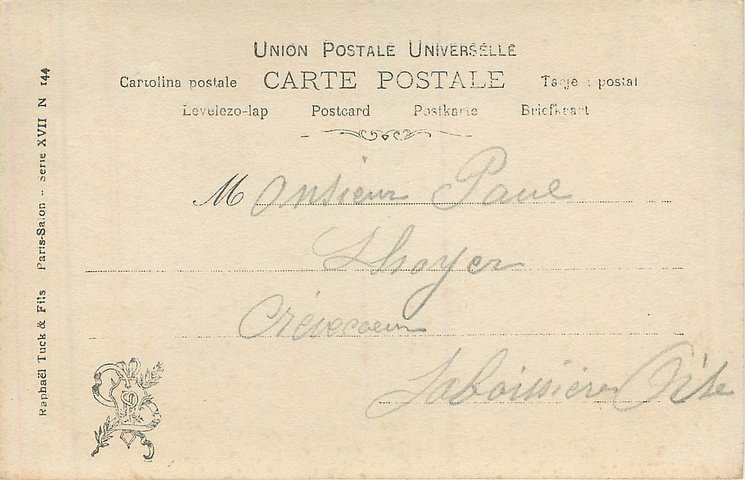 UNION POSTALE UNIVERSELLE
Cartolina postale CARTE POSTALE Tarje : postal
Levelezo-lap Postcard Postkarte Briefkaart
Monsieur Paul
Lhoyer
Crèvecoeur
Laboissière Oise
Raphaël Tuck & Fils Paris-Salon - Serie XVII N 144